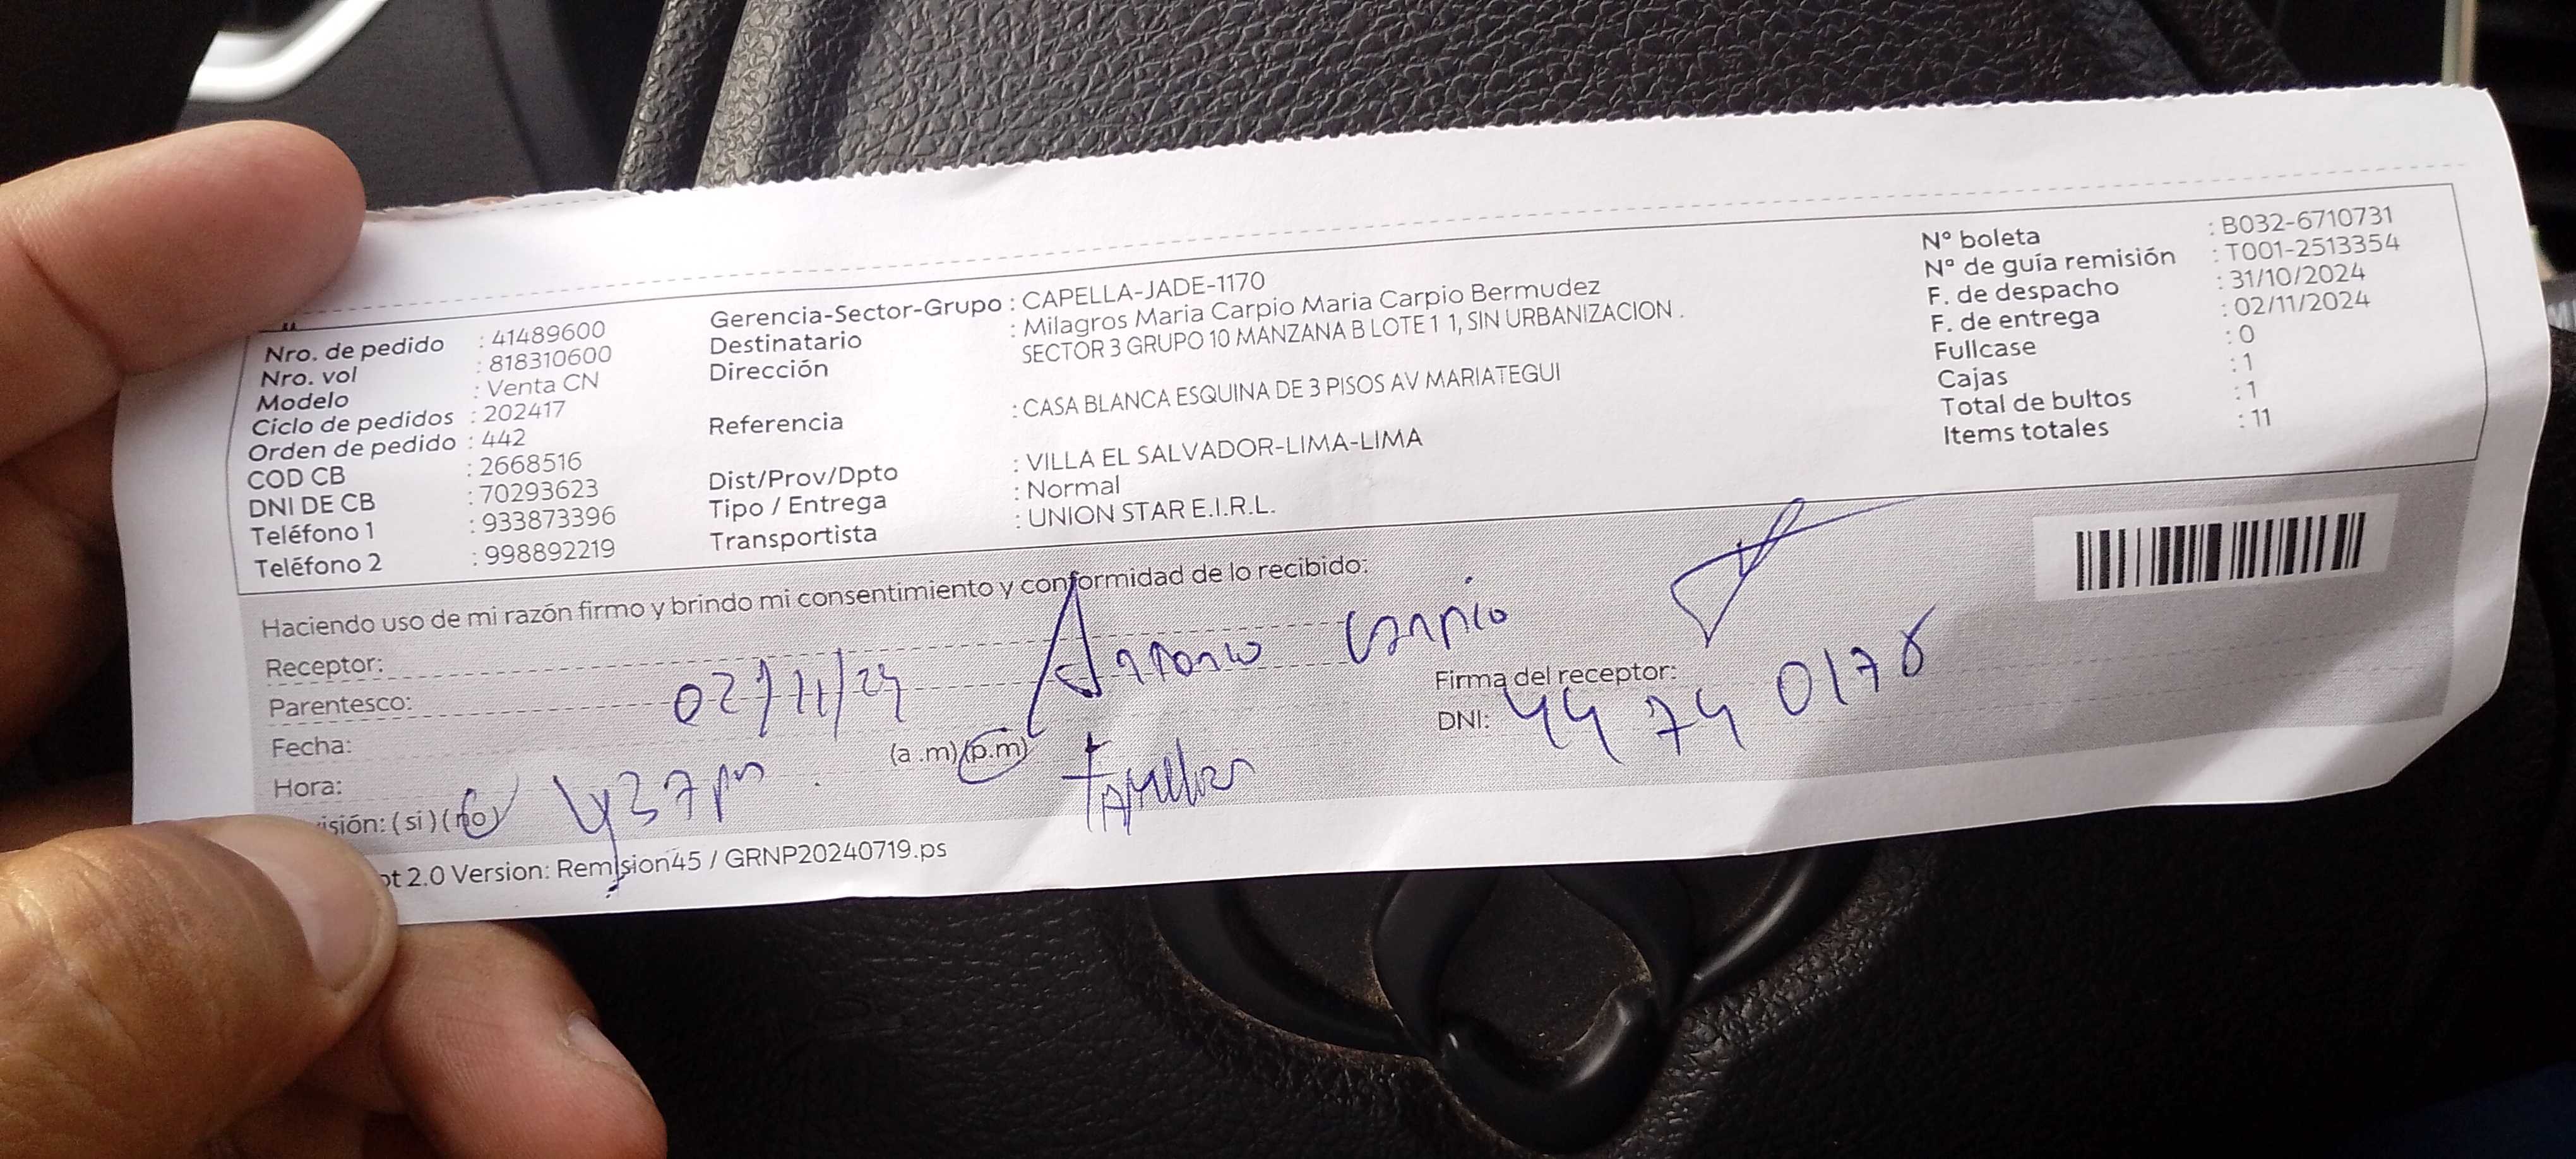 Nro. de pedido : 41489600
Nro. vol : 818310600
Modelo : Venta CN
Ciclo de pedidos : 202417
Orden de pedido : 442
COD CB : 2668516
DNI DE CB : 70293623
Teléfono 1 : 933873396
Teléfono 2 : 998892219
Gerencia-Sector-Grupo : CAPELLA-JADE-1170
Destinatario : Milagros Maria Carpio Maria Carpio Bermudez
Dirección SECTOR 3 GRUPO 10 MANZANA B LOTE 1 1, SIN URBANIZACION .
Referencia : CASA BLANCA ESQUINA DE 3 PISOS AV MARIATEGUI
Dist/Prov/Dpto : VILLA EL SALVADOR-LIMA-LIMA
Tipo / Entrega : Normal
Transportista : UNION STAR E.I.R.L.
N° boleta : B032-6710731
N° de guía remisión : T001-2513354
F. de despacho : 31/10/2024
F. de entrega : 02/11/2024
Fullcase : 0
Cajas : 1
Total de bultos : 1
Items totales : 11
Haciendo uso de mi razón firmo y brindo mi consentimiento y conformidad de lo recibido:
Receptor: Antonio Carpio
Parentesco:
Fecha: 02/11/24
Hora: (a .m) (p.m)
isión: ( si ) ( no ) 4 37 pm Familiar
Firma del receptor:
DNI: 44740178
ot 2.0 Version: Remision45 / GRNP20240719.ps